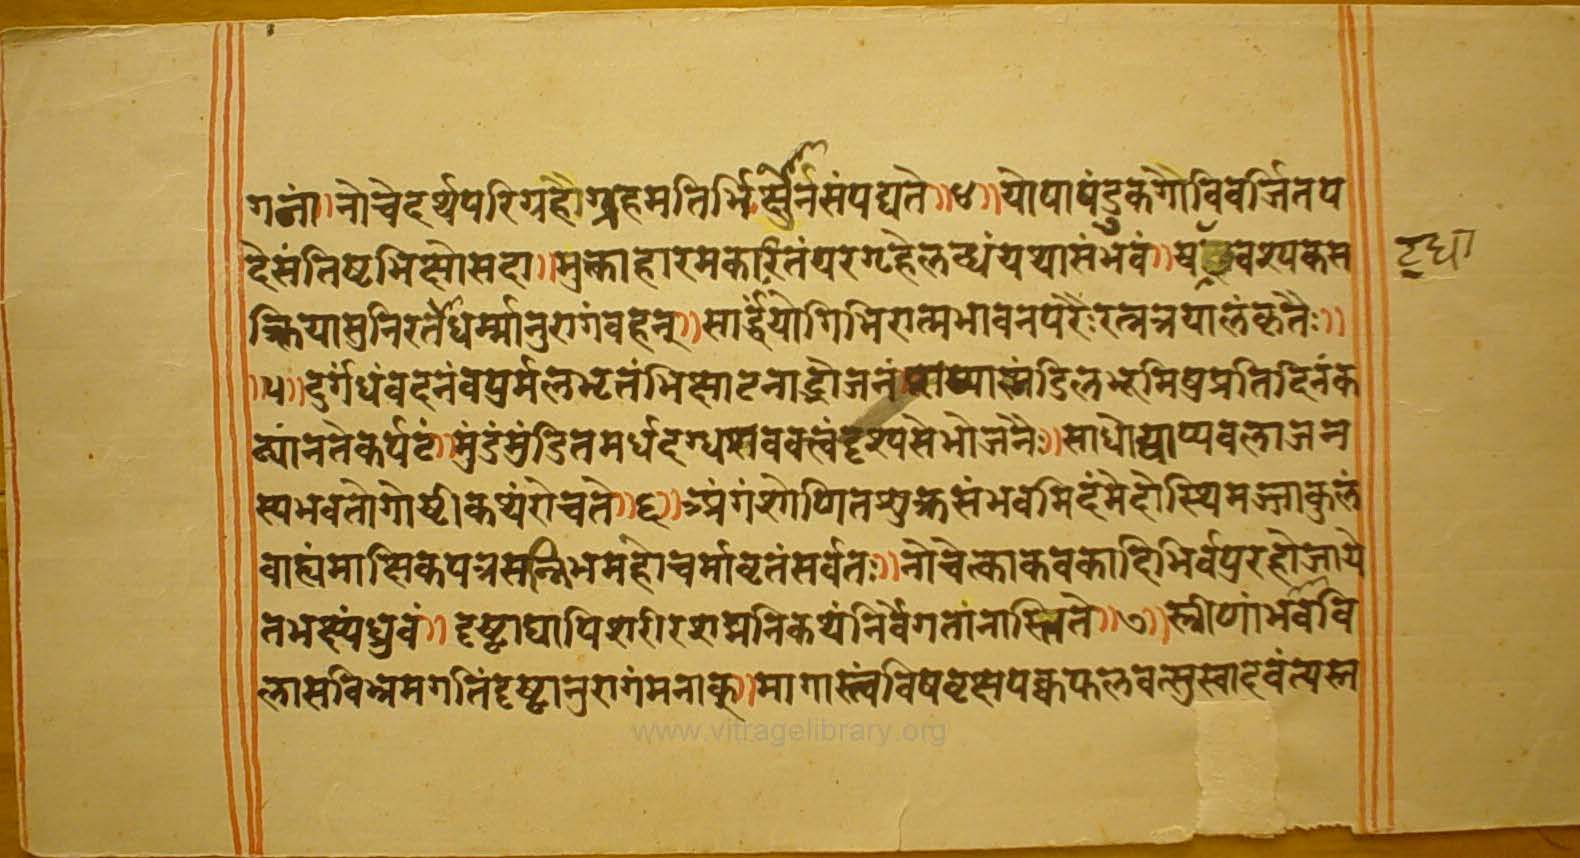 गनां॥नोचेदर्थपरिग्रहोग्रहमतिर्भिक्षुर्नसंपद्यते॥४॥योषापंडुकगोविवर्जितप
देसंतिष्टभिक्षोसदा॥भुक्ताहारमकारितंपरगृहेलब्धंयथासंभवं॥ वश्यकस
त्क्रियासुनिरतोधर्म्मानुरागंवहन्॥सार्द्धंयोगिभिरात्मभावनपरैःरत्नत्रयालंकृतैः॥
॥५॥दुर्गंधंवदनंवपुर्मलभृतंभिक्षाटनाद्भोजनं स्थंडिलभूमिषुप्रतिदिनंक
ट्यांनतेकर्पटं॥मुंडंमुंडितमर्धदग्धशववत्त्वंदृश्यसेभोजनैः॥साधोद्याप्यबलाजन
स्यभवतोगोष्टीकथंरोचते॥६॥अंगंशोणितशुक्रसंभवमिदंमेदोस्थिमज्जाकुलं
बाह्यंमाक्षिकपत्रसन्निभमहोचर्मावृतंसर्वतः॥नोचेत्काकबकादिभिर्वपुरहोजाये
तभक्ष्यंध्रुवं॥ दृष्ट्वाद्यापिशरीरशद्मनिकथंनिर्वेगतांनास्तिते॥७॥स्त्रीणांभावेवि
लासविभ्रमगतिंदृष्ट्वानुरागंमनाक्॥मागास्त्वंविषवृक्षपक्वफलवत्सुस्वादवंत्यस्त
www.vitragelibrary.org